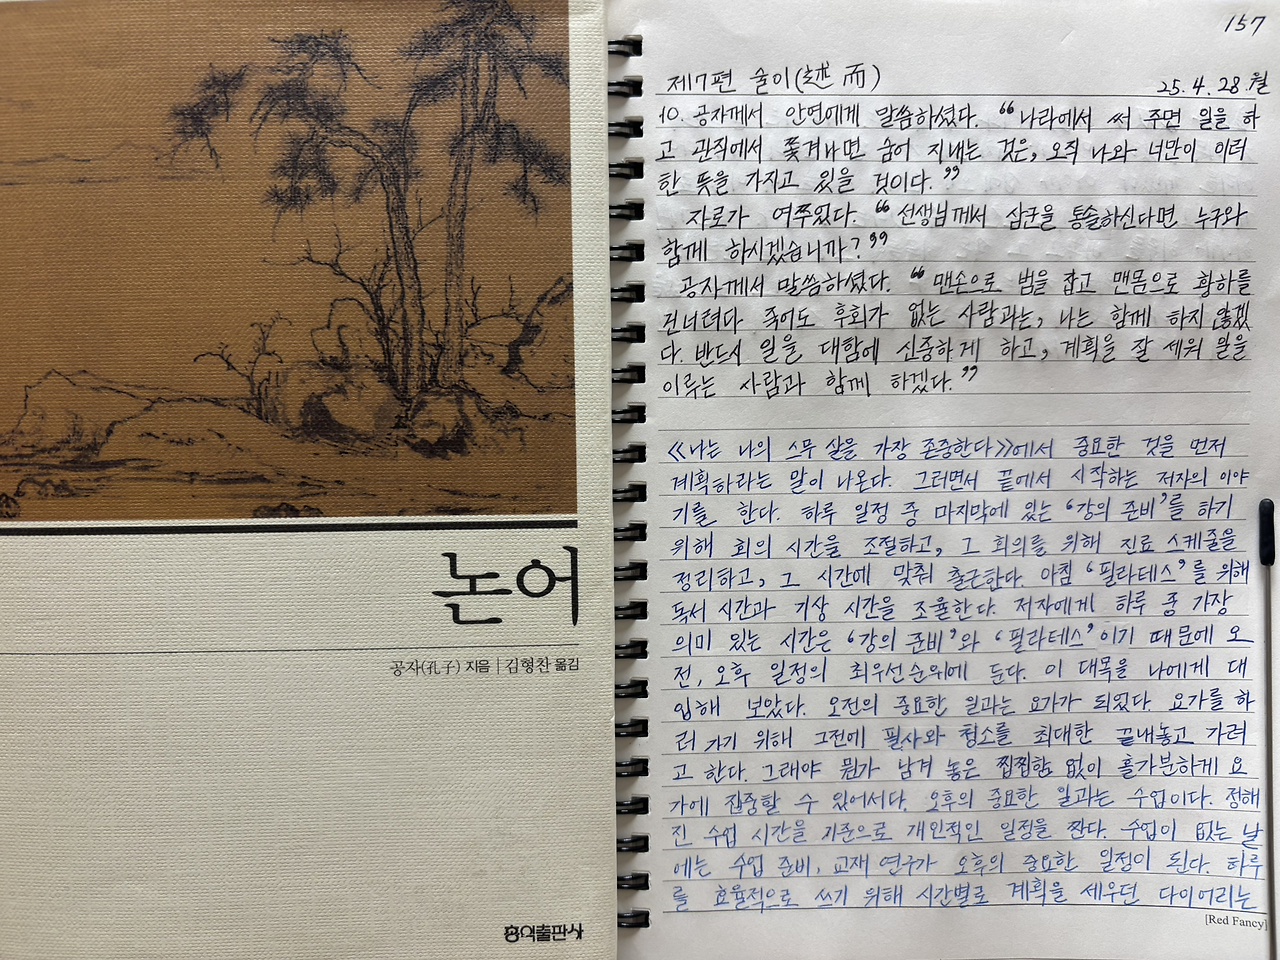 논어
공자(孔子) 지음 | 김형찬 옮김
홍익출판사
157
제7편 술이(述而)
25. 4. 28. 월
10. 공자께서 안연에게 말씀하셨다. "나라에서 써 주면 일을 하
고 관직에서 쫓겨나면 숨어 지내는 것은, 오직 나와 너만이 이러
한 뜻을 가지고 있을 것이다."
자로가 여쭈었다. "선생님께서 삼군을 통솔하신다면 누구와
함께 하시겠습니까?"
공자께서 말씀하셨다. "맨손으로 범을 잡고 맨몸으로 황하를
건너려다 죽어도 후회가 없는 사람과는, 나는 함께 하지 않겠
다. 반드시 일을 대함에 신중하게 하고, 계획을 잘 세워 일을
이루는 사람과 함께 하겠다."
《나는 나의 스무 살을 가장 존중한다》에서 중요한 것을 먼저
계획하라는 말이 나온다. 그러면서 끝에서 시작하는 저자의 이야
기를 한다. 하루 일정 중 마지막에 있는 '강의 준비'를 하기
위해 회의 시간을 조절하고, 그 회의를 위해 진료 스케줄을
정리하고, 그 시간에 맞춰 출근한다. 아침 '필라테스'를 위해
독서 시간과 기상 시간을 조율한다. 저자에게 하루 중 가장
의미 있는 시간은 '강의 준비'와 '필라테스'이기 때문에 오
전, 오후 일정의 최우선순위에 둔다. 이 대목을 나에게 대
입해 보았다. 오전의 중요한 일과는 요가가 되었다. 요가를 하
러 가기 위해 그전에 필사와 청소를 최대한 끝내놓고 가려
고 한다. 그래야 뭔가 남겨 놓은 찝찝함 없이 홀가분하게 요
가에 집중할 수 있어서다. 오후의 중요한 일과는 수업이다. 정해
진 수업 시간을 기준으로 개인적인 일정을 짠다. 수업이 없는 날
에는 수업 준비, 교재 연구가 오후의 중요한 일정이 된다. 하루
를 효율적으로 쓰기 위해 시간별로 계획을 세우던 다이어리는
[Red Fancy]